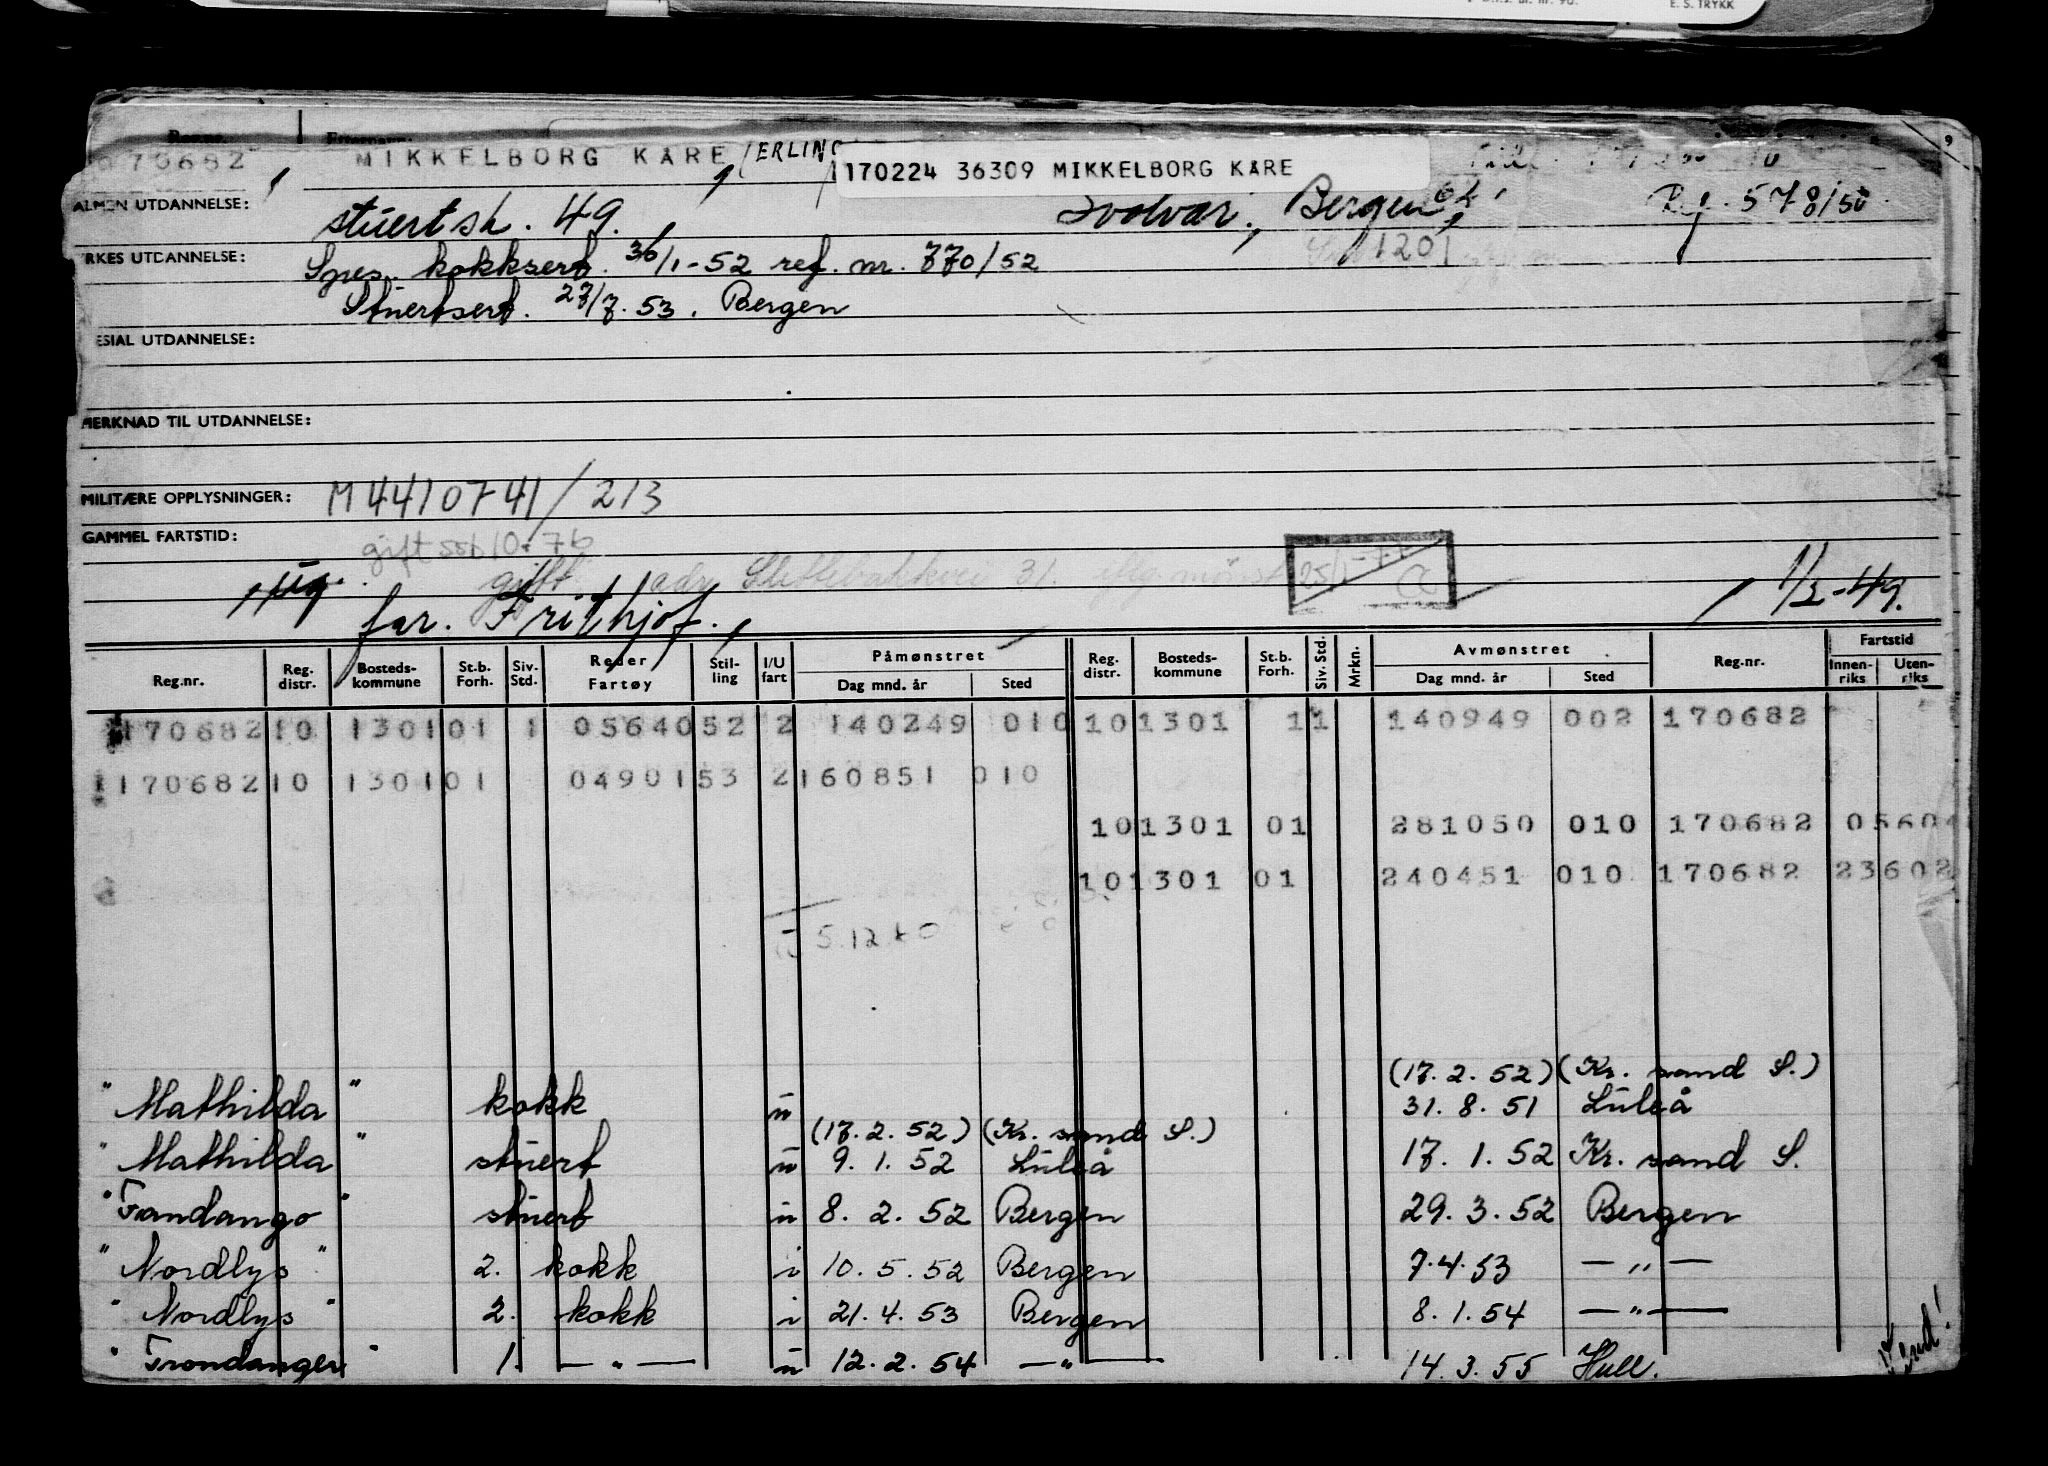 E. S. TRYKK
70682 MIKKELBORG KARE (ERLING 170224 36309 MIKKELBORG KARE
ALMEN UTDANNELSE: stuertsk. 49. Svolvær, Bergen Reg. 578/50
RKES UTDANNELSE: Spes. kokksert. 36/1-52 ref. nr. 770/52 1201
Stuertsert. 27/7.53. Bergen
ESIAL UTDANNELSE:
MERKNAD TIL UTDANNELSE:
MILITÆRE OPPLYSNINGER: M4410741/213
GAMMEL FARTSTID: gift
ug. gift adr Slettebakkvei 31.
far. Frithjof. 1/2-49.
Reg.nr. Reg. distr. Bosteds-kommune St.b. Forh. Siv. Std. Reder Fartøy Stil-ling I/U fart Påmønstret Dag mnd. år Sted Reg. distr. Bosteds-kommune St.b. Forh. Siv. Std. Mrkn. Avmønstret Dag mnd. år Sted Reg.nr. Fartstid Innen-riks Uten-riks
170682 10 1301 01 1 05640 52 2 140249 010 10 1301 1 1 140949 002 170682
170682 10 1301 01 04901 53 2 160851 010
10 1301 01 281050 010 170682 05 60
10 1301 01 240451 010 170682 23 602
(17. 2. 52) (Kr. sand S.)
" Mathilda " kokk u 31. 8. 51 Luleå
(17. 2. 52) (Kr. sand S.)
" Mathilda " stuert u 9. 1. 52 Luleå 17. 1. 52 Kr. sand S.
" Fandango " stuert u 8. 2. 52 Bergen 29. 3. 52 Bergen
" Nordlys " 2. kokk i 10. 5. 52 Bergen 7.4.53 — " —
" Nordlys " 2. kokk i 21. 4. 53 Bergen 8. 1. 54 — " —
" Trondanger " 1. — " — u 12. 2. 54 — " — 14. 3. 55 Hull.
Vend!